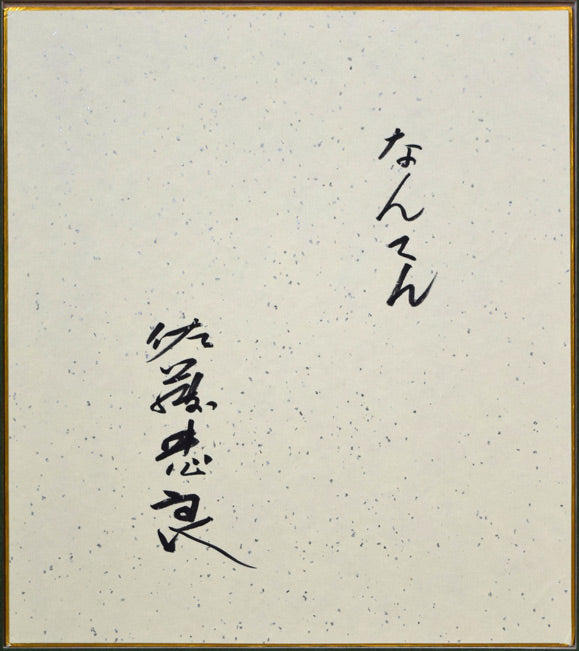 なんてん
佐藤忠良